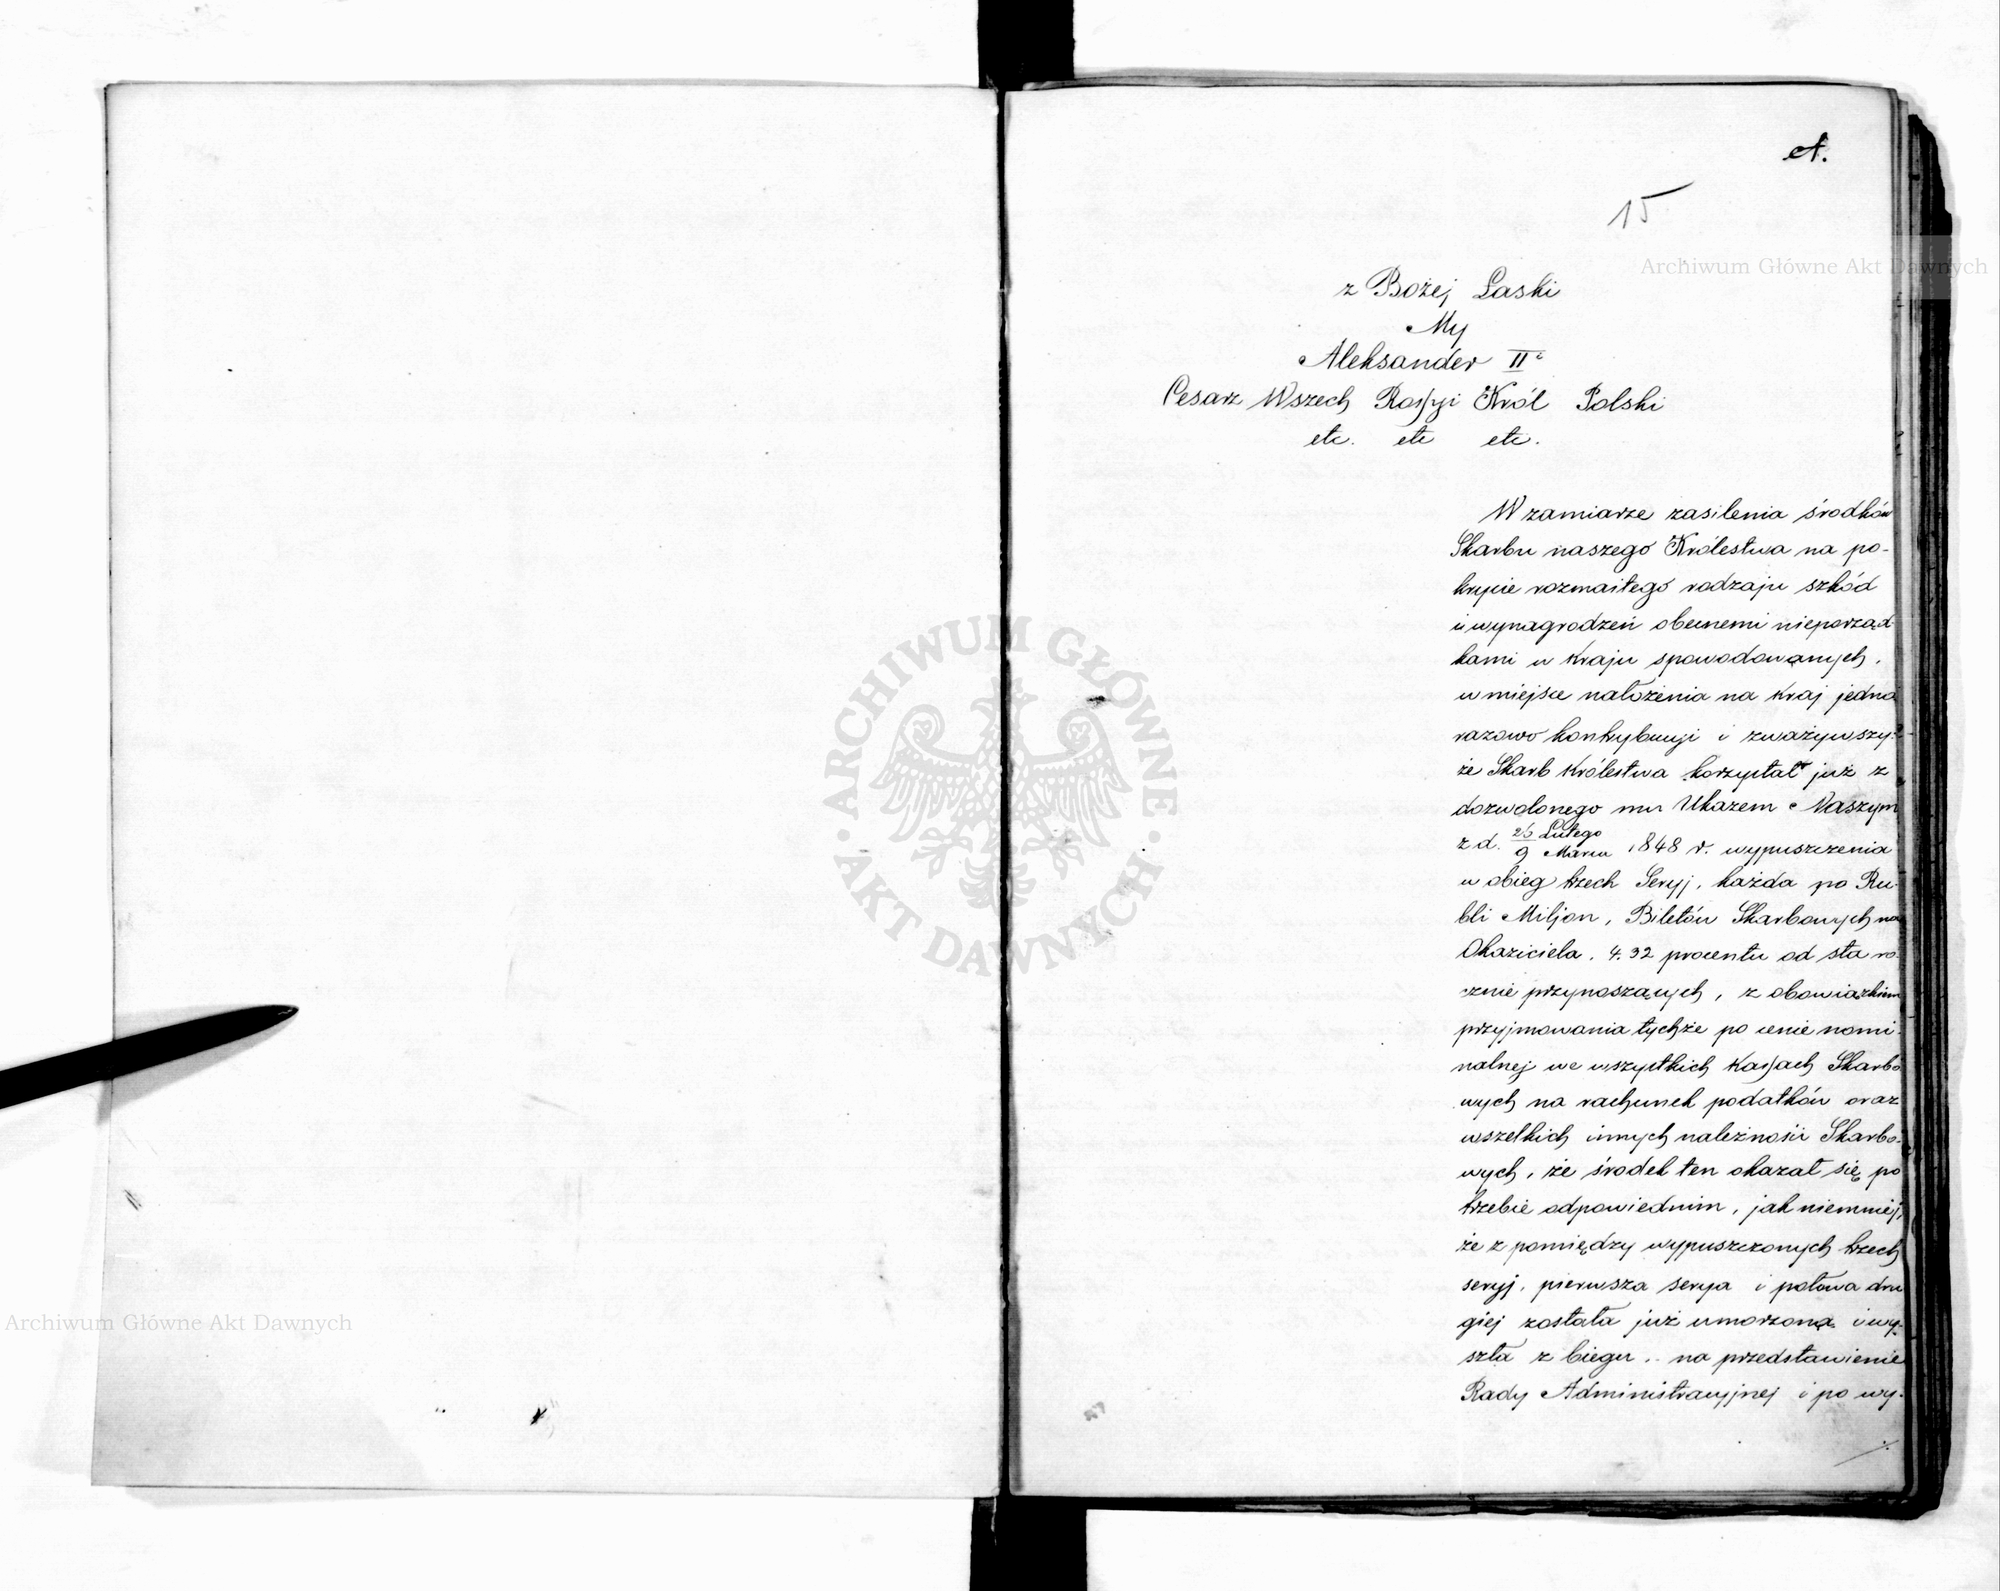 A.
15
Archiwum Główne Akt Dawnych
z Bożej Łaski
My
Aleksander II
Cesarz Wszech Rossyi Król Polski
etc. etc etc.
W zamiarze zasilenia środków
Skarbu naszego Królestwa na po-
krycie rozmaitego rodzaju szkód
i wynagrodzeń obecnemi nieporząd
kami w kraju spowodowanych,
w miejsce nałożenia na kraj jedno
razowo kontrybucyi i zważywszy:
że Skarb Królestwa korzystał już z
dozwolonego mu Ukazem Naszym
z d. 26 Lutego / 9 Marca 1848 r. wypuszczenia
w obieg trzech Seryj, każda po Ru-
bli Miljon, Biletów Skarbowych na
Okaziciela, 4.32 procentu od sta ro-
cznie przynoszących, z obowiązkiem
przyjmowania tychże po cenie nomi-
nalnej we wszystkich Kassach Skarbo
wych na rachunek podatków oraz
wszelkich innych należności Skarbo-
wych, że środek ten okazał się po
trzebie odpowiednim, jak niemniej,
że z pomiędzy wypuszczonych trzech
seryj, pierwsza serya i połowa dru
giej została już umorzona i wy-
szła z biegu, na przedstawienie
Rady Administracyjnej i po wy-
ARCHIWUM GŁÓWNE · AKT DAWNYCH ·
Archiwum Główne Akt Dawnych